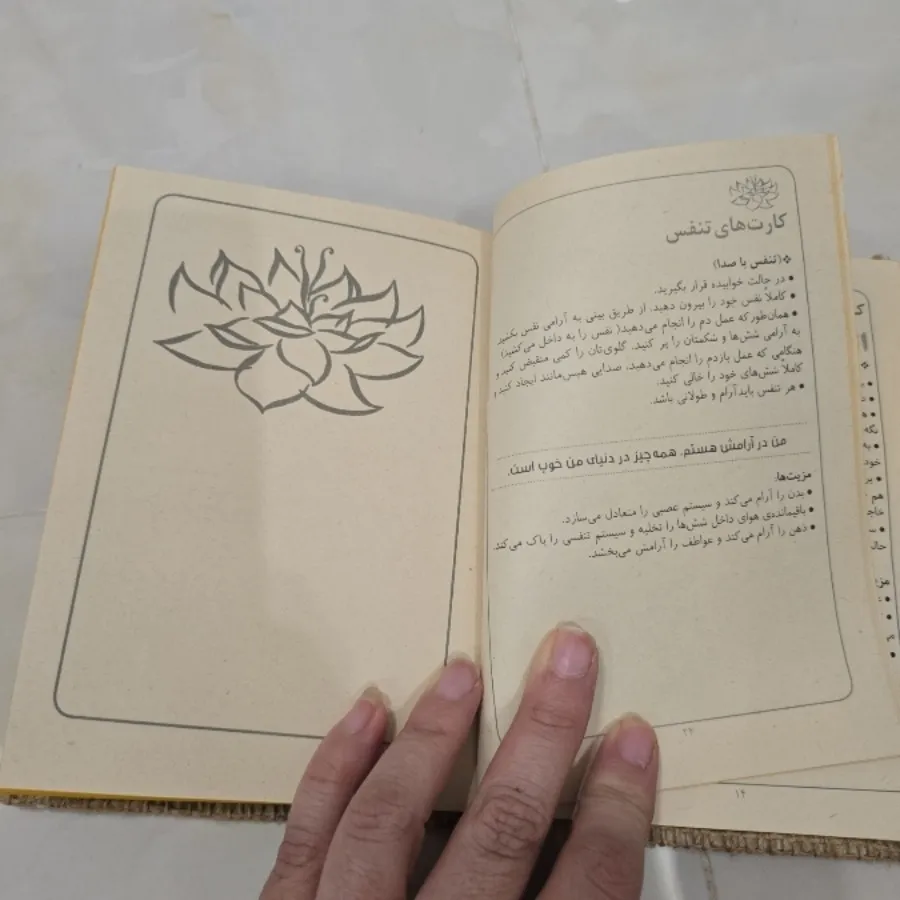 کارت‌های تنفس
❖(تنفس با صدا)
• در حالت خوابیده قرار بگیرید.
• کاملاً نفس خود را بیرون دهید، از طریق بینی به آرامی نفس بکشید
• همان‌طور که عمل دم را انجام می‌دهید( نفس را به داخل می‌کشید)
به آرامی شش‌ها و شکمتان را پر کنید. گلوی‌تان را کمی منقبض کنید و
هنگامی که عمل بازدم را انجام می‌دهید، صدایی هیس‌مانند ایجاد کنید و
کاملاً شش‌های خود را خالی کنید.
• هر تنفس باید آرام و طولانی باشد.
من در آرامش هستم، همه‌چیز در دنیای من خوب است.
مزیت‌ها:
• بدن را آرام می‌کند و سیستم عصبی را متعادل می‌سازد.
• باقیمانده‌ی هوای داخل شش‌ها را تخلیه و سیستم تنفسی را پاک می‌کند.
• ذهن را آرام می‌کند و عواطف را آرامش می‌بخشد.
۱۴